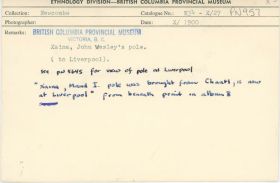 ETHNOLOGY DIVISION—BRITISH COLUMBIA PROVINCIAL MUSEUM
Collection: Newcombe Catalogue No. PN957
Photographer: Date: X/ 1900
Remarks: BRITISH COLUMBIA PROVINCIAL MUSEUM
VICTORIA, B. C.
Xaina, John Wesley's pole.
( to Liverpool).
see PN 5645 for view of pole at Liverpool
"Xaina, Maud I. pole was brought from Chaatl, is now
at Liverpool" from beneath print in album